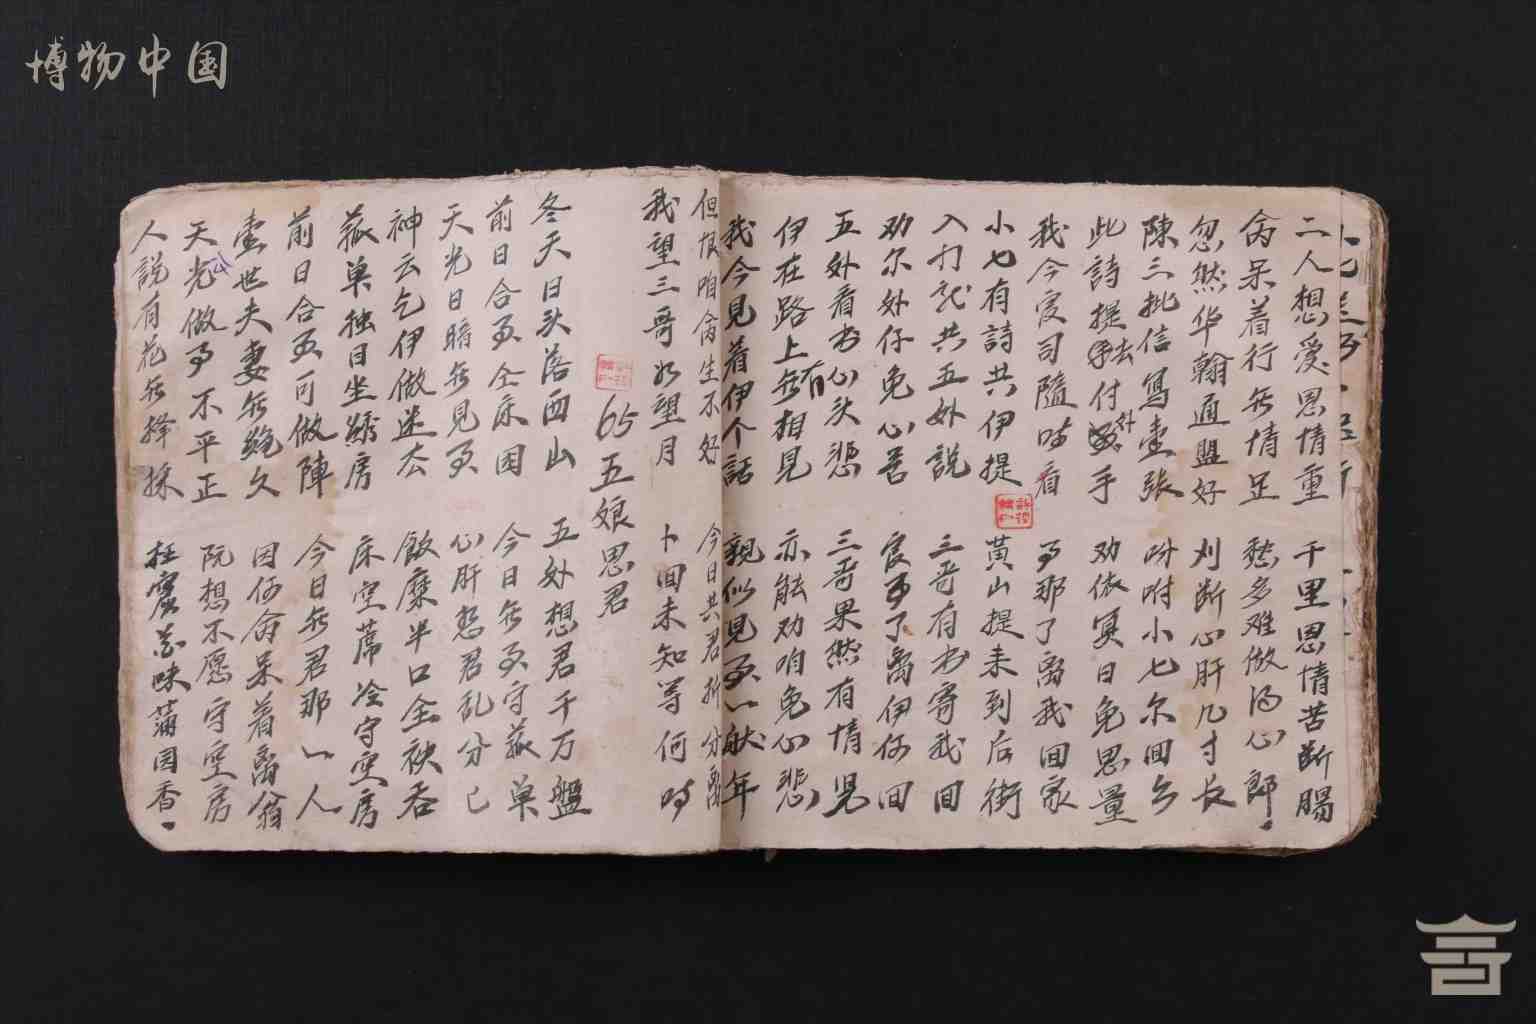 博物中国
二人想爱恩情重 千里恩情苦断腸
侌呆着行無情足 愁多难做鸿心郎
忽然华翰通盟好 刈断心肝几寸长
陳三批信写壹張 吩咐小七尔回乡
此詩提去付外手 劝依冥日免思量
我今官司隨时看 那了离我回家
小七有詩共伊提 黄山提来到后街
入打就共五外說 三哥有书寄我回
劝尔外仔免心苦 官了离伊何回
五外看书心头悲 三哥果然有情児
伊在路上有相見 亦能劝咱免心悲
我今見着伊个話 親似見一般年
但恨咱侌生不好 今日共君折分离
我望三哥如望月 卜回未知等何时
65 五娘思君
冬天日头落西山 五外想君千万盤
前日合仝床困 今日守菰单
天光日暗見 心肝愁君乱分己
神云乞伊做迷 飲糜半口全袂吞
菰单独自坐綉房 床空蓆冷守空房
前日合可做陣 今日君那一人
壹世夫妻久 因何侌呆着离翁
天光做不平正 阮想不愿守空房
人說有花採 枉蒲园香